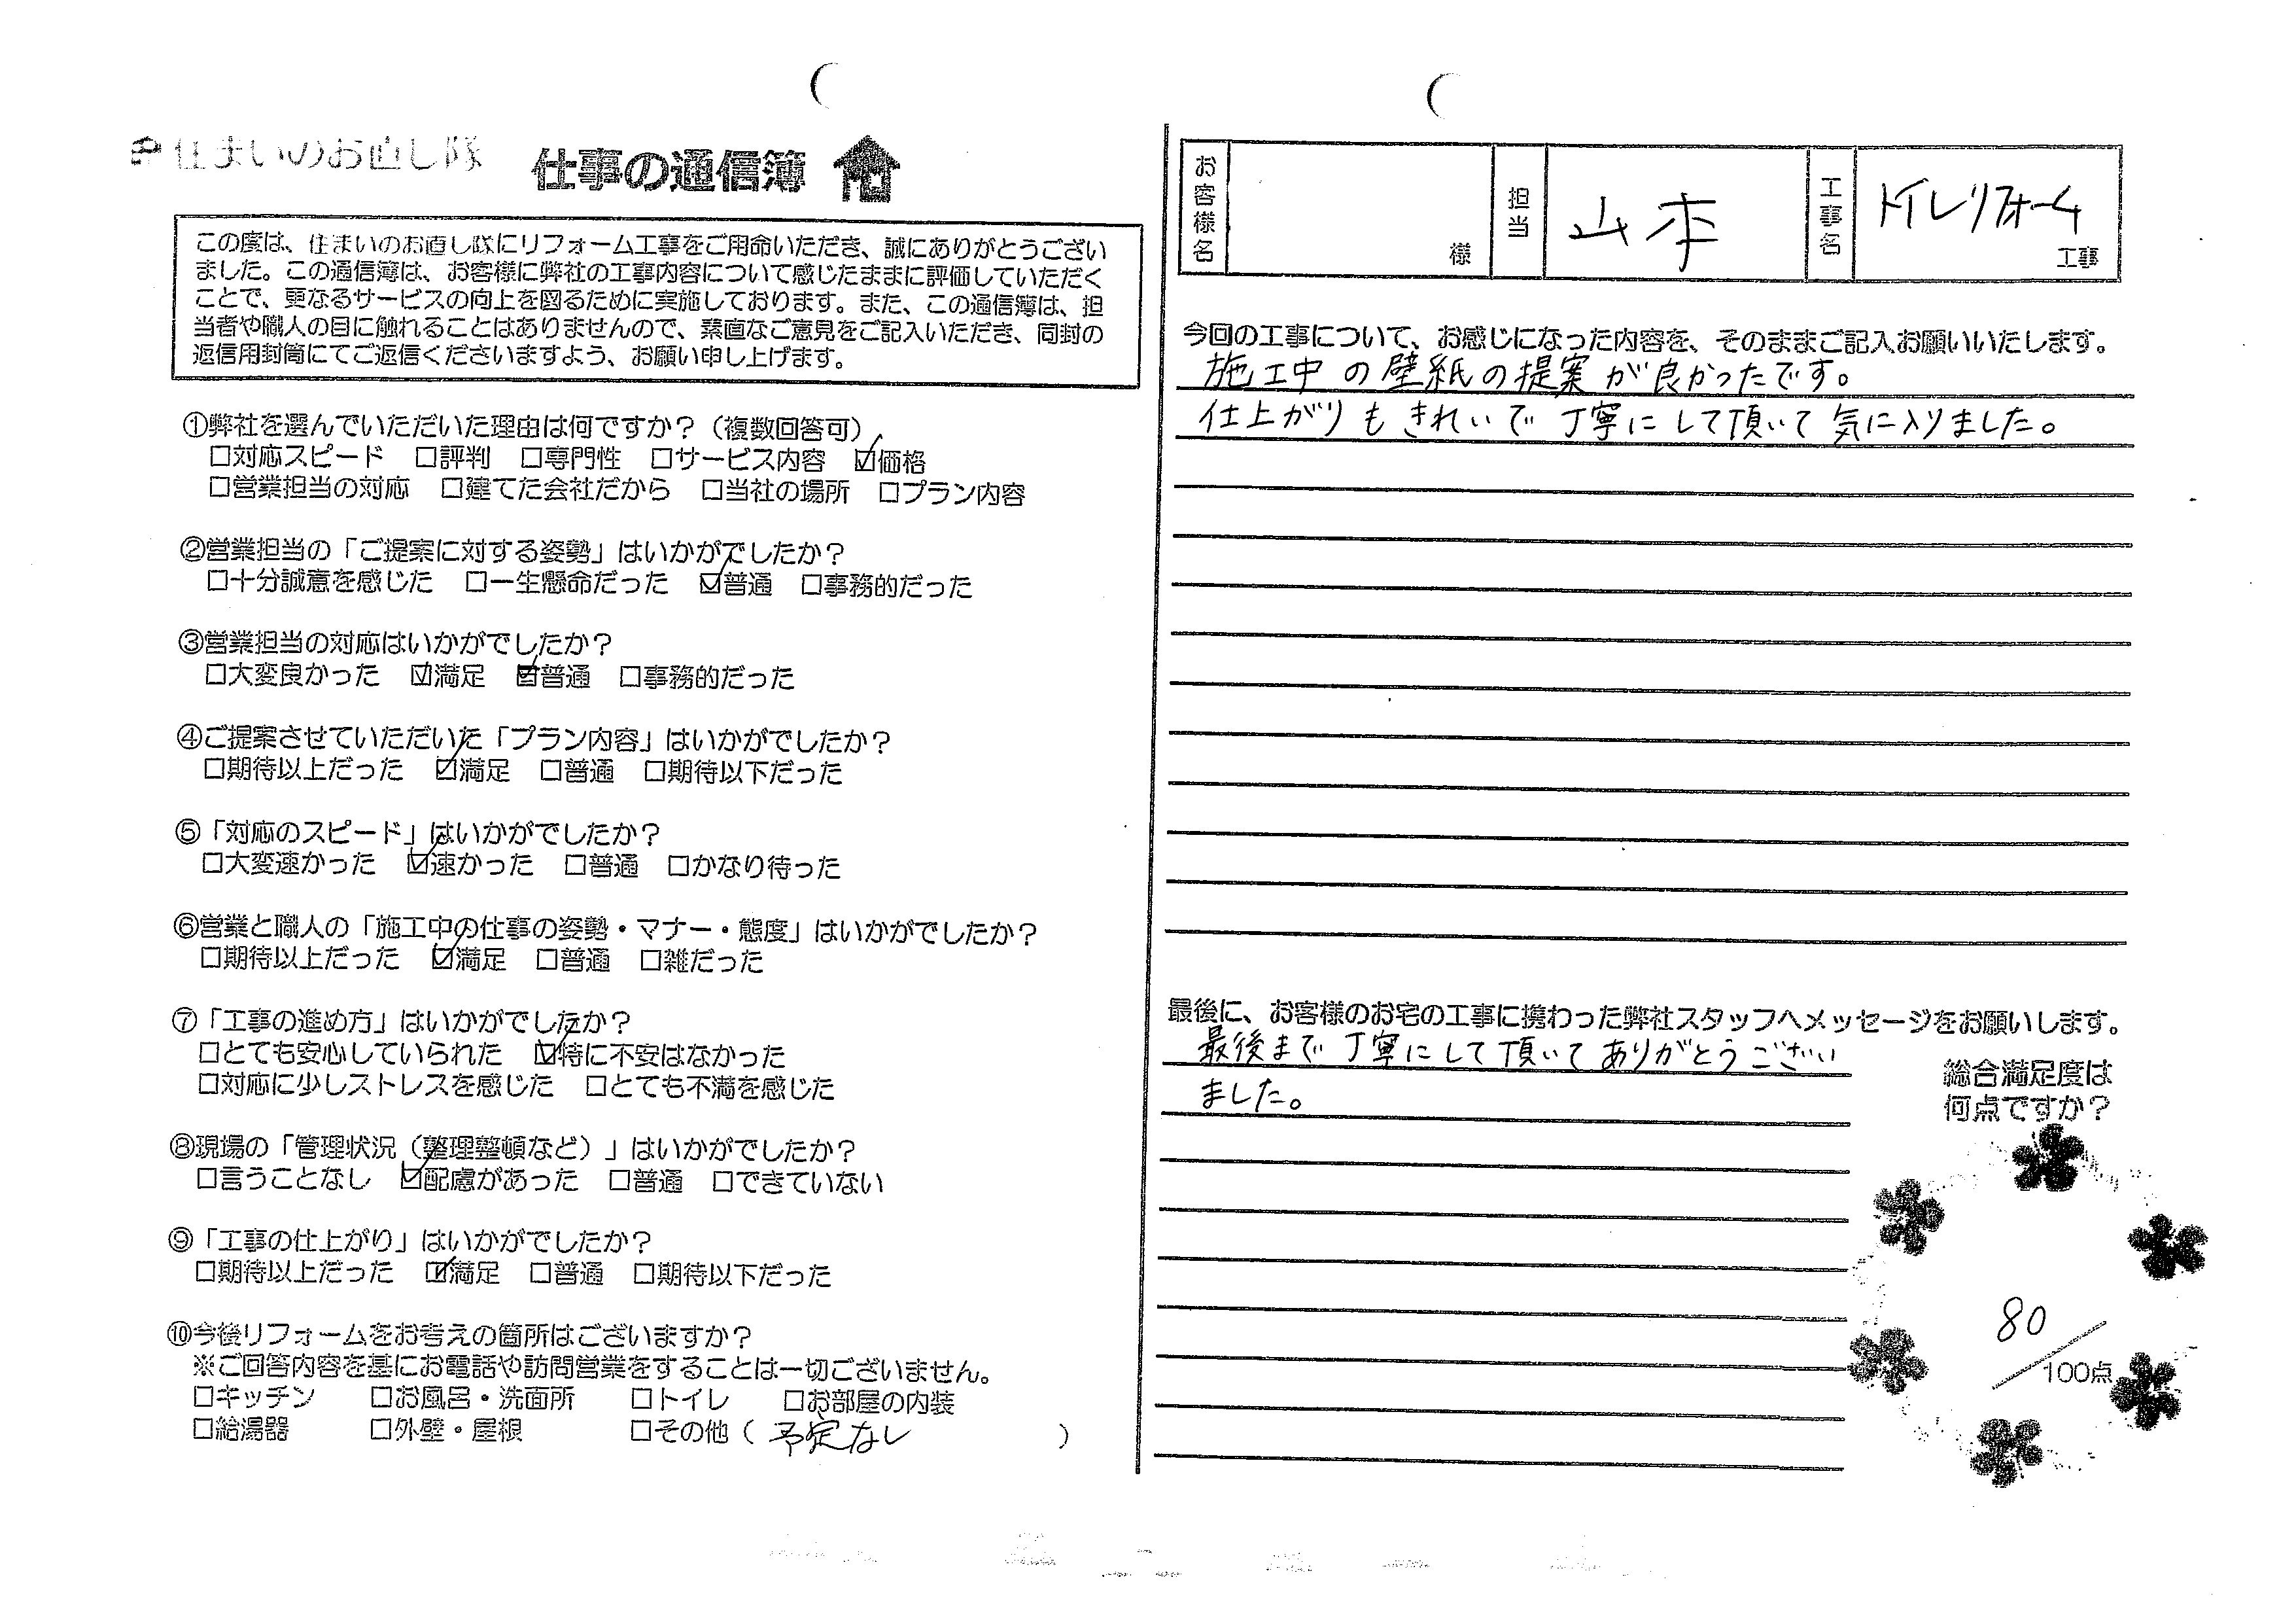 住まいのお直し隊
仕事の通信簿
この度は、住まいのお直し隊にリフォーム工事をご用命いただき、誠にありがとうござい
ました。この通信簿は、お客様に弊社の工事内容について感じたままに評価していただく
ことで、更なるサービスの向上を図るために実施しております。また、この通信簿は、担
当者や職人の目に触れることはありませんので、素直なご意見をご記入いただき、同封の
返信用封筒にてご返信くださいますよう、お願い申し上げます。
①弊社を選んでいただいた理由は何ですか？（複数回答可）
□対応スピード □評判 □専門性 □サービス内容 ☑価格
□営業担当の対応 □建てた会社だから □当社の場所 □プラン内容
②営業担当の「ご提案に対する姿勢」はいかがでしたか？
□十分誠意を感じた □一生懸命だった ☑普通 □事務的だった
③営業担当の対応はいかがでしたか？
□大変良かった ☑満足 ☑普通 □事務的だった
④ご提案させていただいた「プラン内容」はいかがでしたか？
□期待以上だった ☑満足 □普通 □期待以下だった
⑤「対応のスピード」はいかがでしたか？
□大変速かった ☑速かった □普通 □かなり待った
⑥営業と職人の「施工中の仕事の姿勢・マナー・態度」はいかがでしたか？
□期待以上だった ☑満足 □普通 □雑だった
⑦「工事の進め方」はいかがでしたか？
□とても安心していられた ☑特に不安はなかった
□対応に少しストレスを感じた □とても不満を感じた
⑧現場の「管理状況（整理整頓など）」はいかがでしたか？
□言うことなし ☑配慮があった □普通 □できていない
⑨「工事の仕上がり」はいかがでしたか？
□期待以上だった ☑満足 □普通 □期待以下だった
⑩今後リフォームをお考えの箇所はございますか？
※ご回答内容を基にお電話や訪問営業をすることは一切ございません。
□キッチン □お風呂・洗面所 □トイレ □お部屋の内装
□給湯器 □外壁・屋根 □その他（ 予定なし ）
お客様名 様 担当 山本 工事名 トイレリフォーム 工事
今回の工事について、お感じになった内容を、そのままご記入お願いいたします。
施工中の壁紙の提案が良かったです。
仕上がりもきれいで丁寧にして頂いて気に入りました。
最後に、お客様のお宅の工事に携わった弊社スタッフへメッセージをお願いします。
最後まで丁寧にして頂いてありがとうござい
ました。
総合満足度は
何点ですか？
80
100点